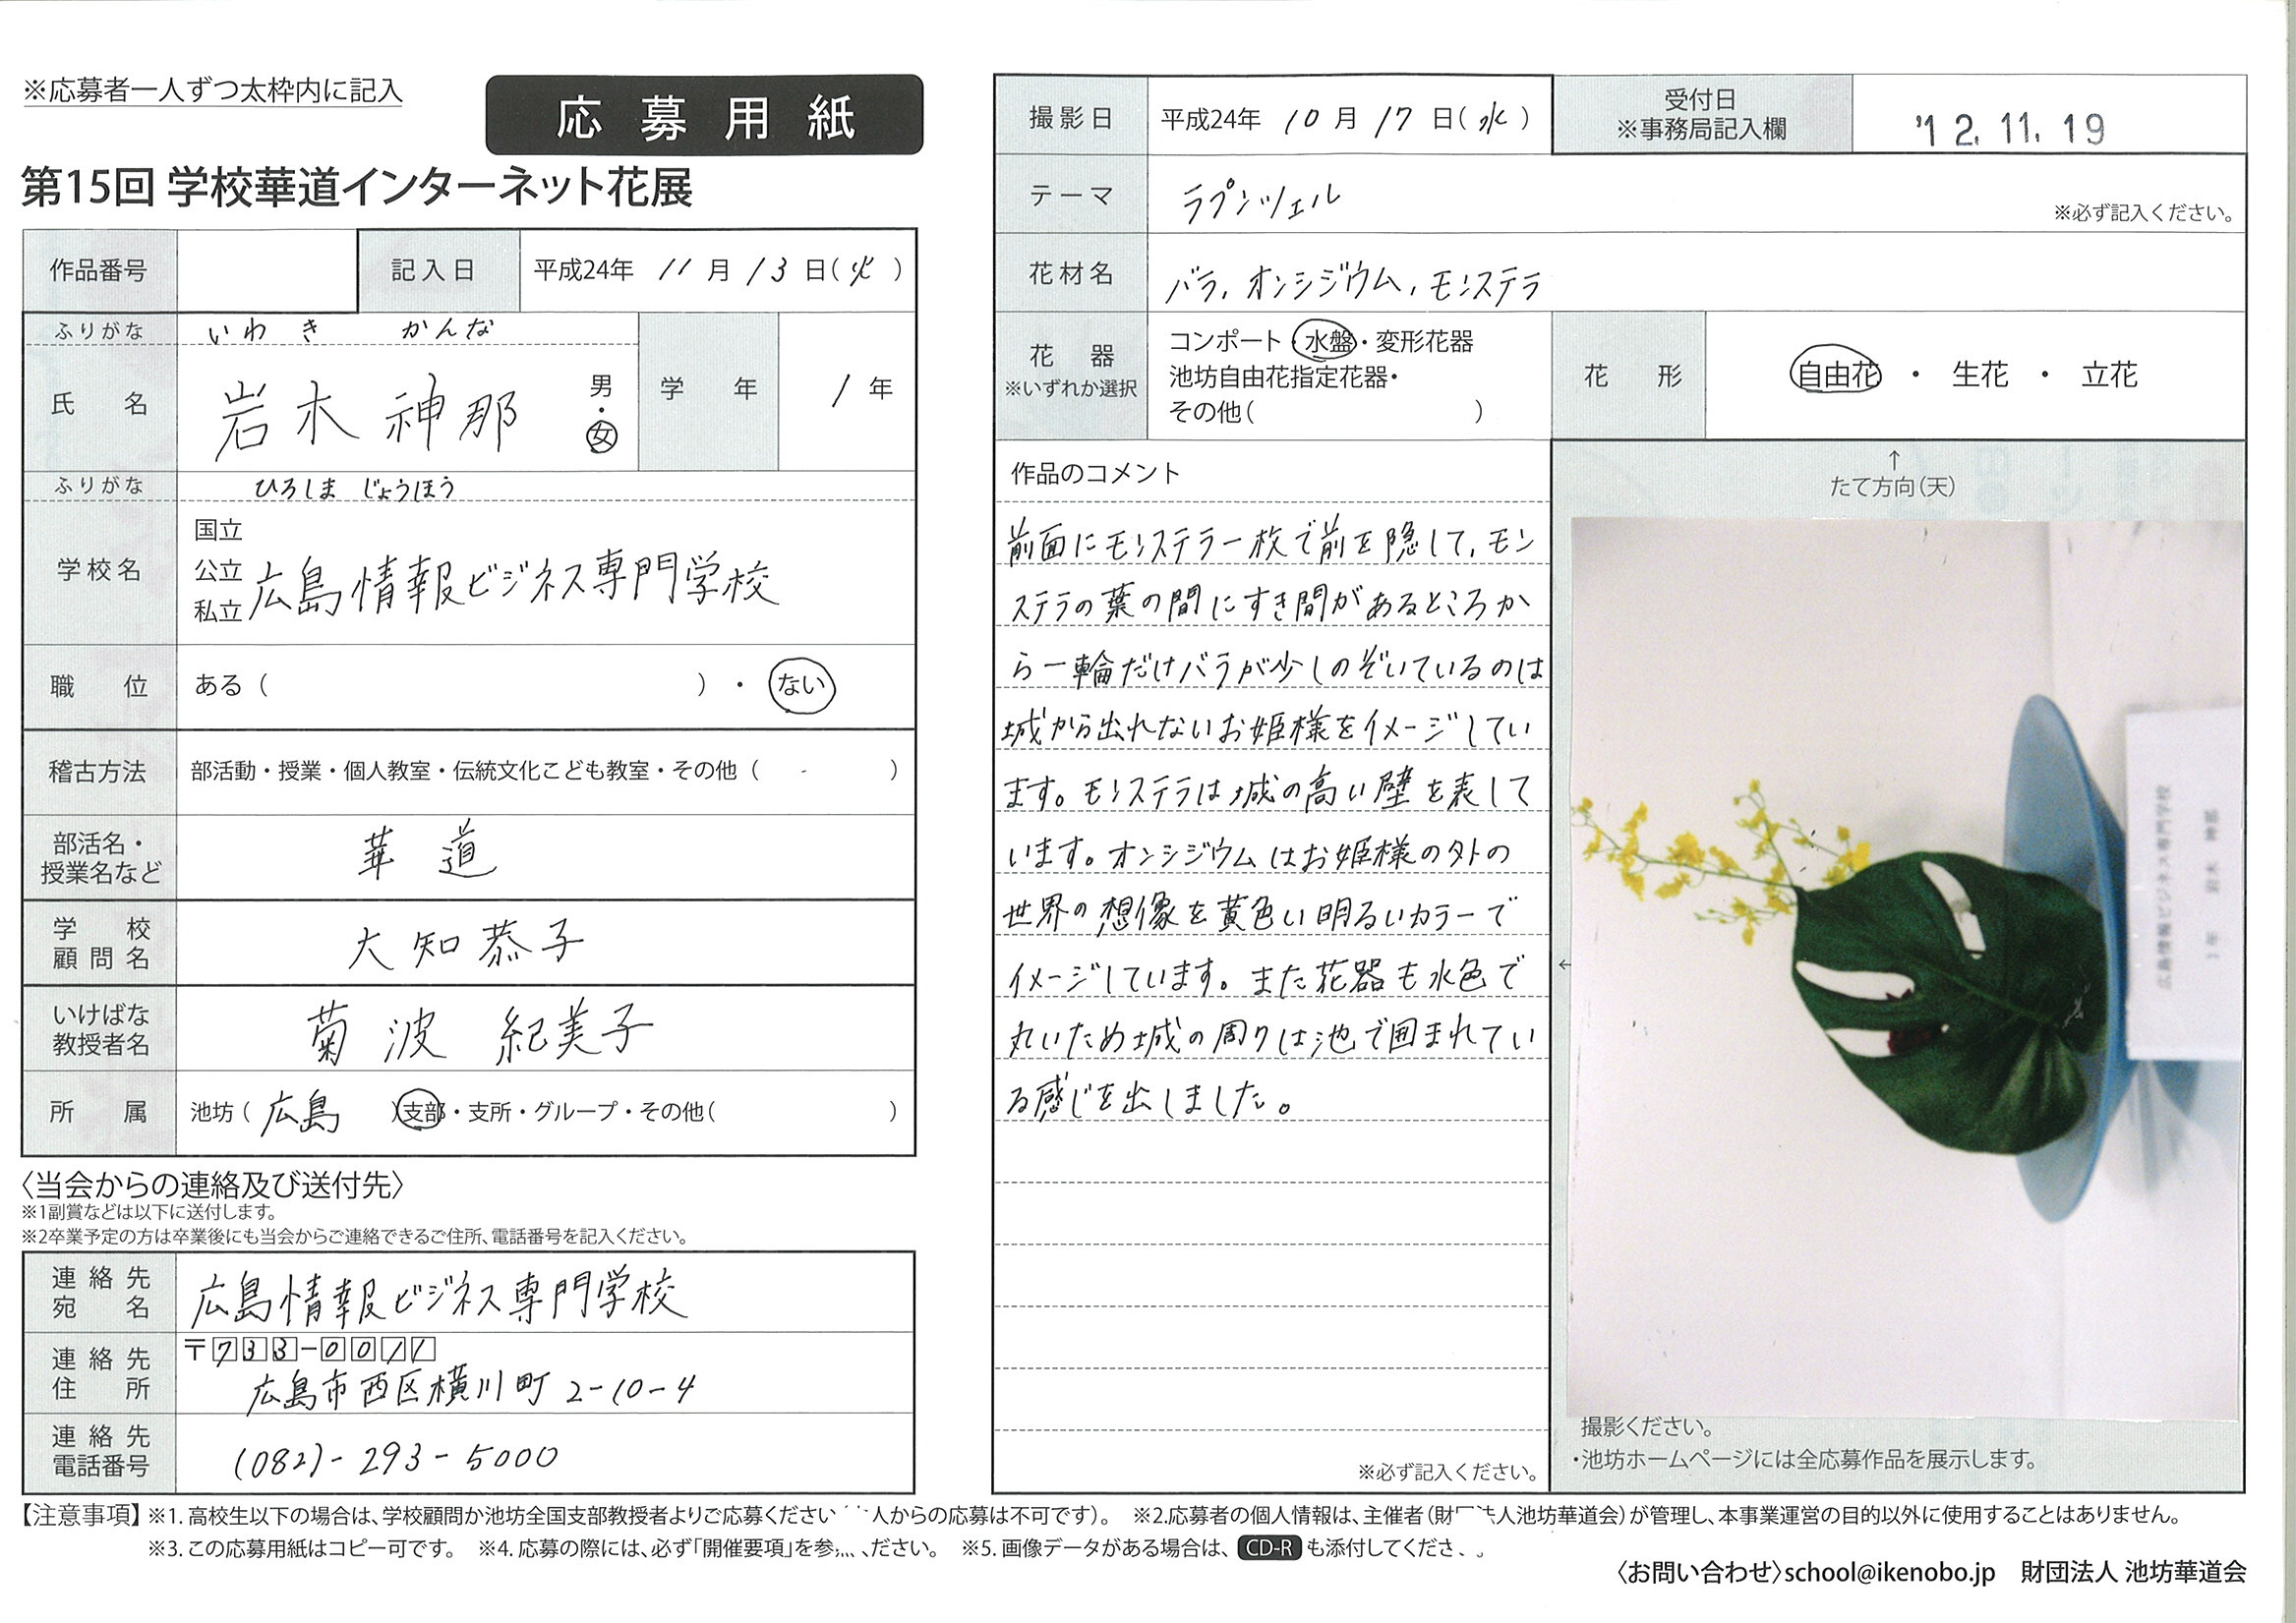 ※応募者一人ずつ太枠内に記入
応募用紙
第15回 学校華道インターネット花展
作品番号
記入日 平成24年 11月13日(火)
ふりがな いわき かんな
氏名 岩木神那 男・女 学年 1年
ふりがな ひろしま じょうほう
学校名 国立 公立 私立 広島情報ビジネス専門学校
職位 ある( )・ない
稽古方法 部活動・授業・個人教室・伝統文化こども教室・その他( )
部活名・授業名など 華道
学校顧問名 大知恭子
いけばな教授者名 菊波 紀美子
所属 池坊(広島)支部・支所・グループ・その他( )
〈当会からの連絡及び送付先〉
※1副賞などは以下に送付します。
※2卒業予定の方は卒業後にも当会からご連絡できるご住所、電話番号を記入ください。
連絡先宛名 広島情報ビジネス専門学校
連絡先住所 〒733-0011
広島市西区横川町2-10-4
連絡先電話番号 (082)-293-5000
撮影日 平成24年 10月17日(水) 受付日 ※事務局記入欄 '12.11.19
テーマ ラプンツェル ※必ず記入ください。
花材名 バラ,オンシジウム,モンステラ
花器 ※いずれか選択 コンポート・水盤・変形花器
池坊自由花指定花器・
その他( )
花形 自由花・生花・立花
作品のコメント
前面にモンステラ一枚で前を隠して,モン
ステラの葉の間にすき間があるところか
ら一輪だけバラが少しのぞいているのは
城から出れないお姫様をイメージしてい
ます。モンステラは城の高い壁を表して
います。オンシジウムはお姫様の外の
世界の想像を黄色い明るいカラーで
イメージしています。また花器も水色で
丸いため城の周りは池で囲まれてい
る感じを出しました。
※必ず記入ください。
↑
たて方向(天)
←
広島情報ビジネス専門学校
1年 岩木 神那
撮影ください。
・池坊ホームページには全応募作品を展示します。
【注意事項】※1. 高校生以下の場合は、学校顧問か池坊全国支部教授者よりご応募ください 人からの応募は不可です)。 ※2.応募者の個人情報は、主催者(財 法人池坊華道会)が管理し、本事業運営の目的以外に使用することはありません。
※3. この応募用紙はコピー可です。 ※4. 応募の際には、必ず「開催要項」を参 ださい。 ※5. 画像データがある場合は、CD-Rも添付してくださ
〈お問い合わせ〉school@ikenobo.jp 財団法人 池坊華道会